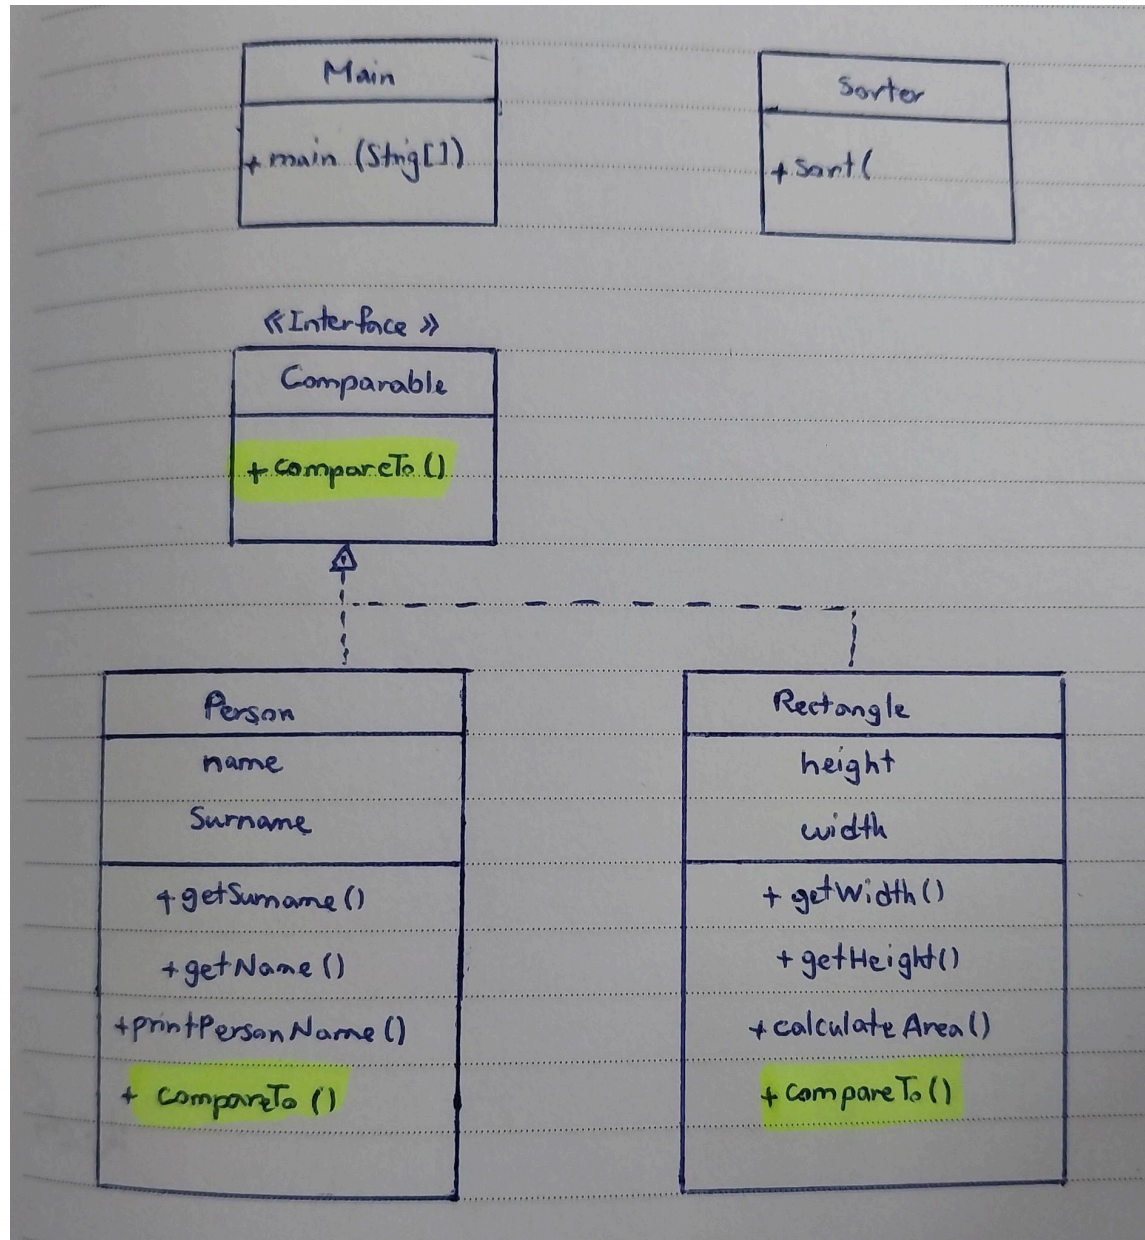 Main
+ main (Strig[])
Sorter
+ sort(
«Interface»
Comparable
+ compareTo()
Person
name
Surname
+ getSurname()
+ getName()
+ printPersonName()
+ compareTo()
Rectangle
height
width
+ getWidth()
+ getHeight()
+ calculateArea()
+ compareTo()